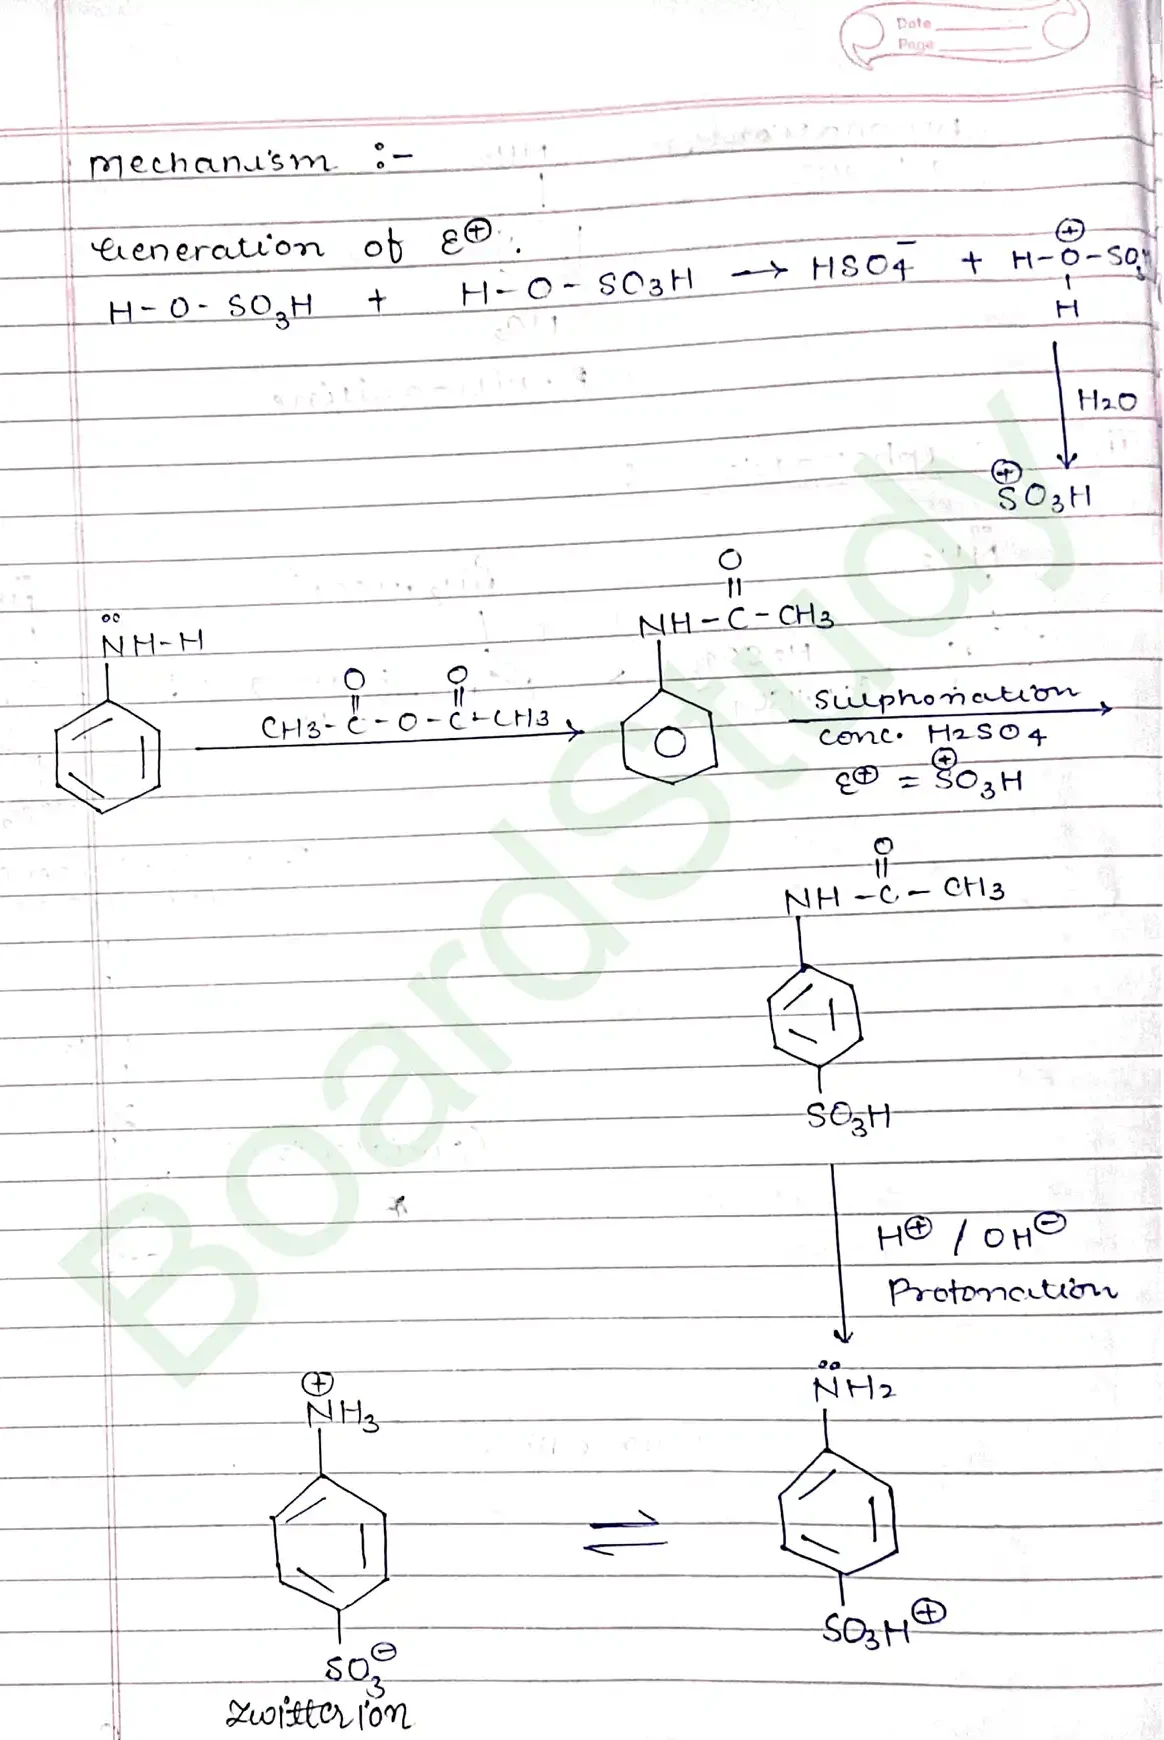 Date
Page
Mechanism :-
Generation of E⊕ :
H-O-SO3H + H-O-SO3H → HSO4⁻ + H-O-SO3H
⊕
H
H2O
⊕
SO3H
O
||
NH-H
NH-C-CH3
O O
|| ||
CH3-C-O-C-CH3
Sulphonation
conc. H2SO4
E⊕ = ⊕SO3H
O
||
NH-C-CH3
SO3H
H⊕ / OH⊖
Protonation
⊕
NH3
NH2
⇌
SO3⊖
SO3H⊕
Zwitter ion
BoardStudy